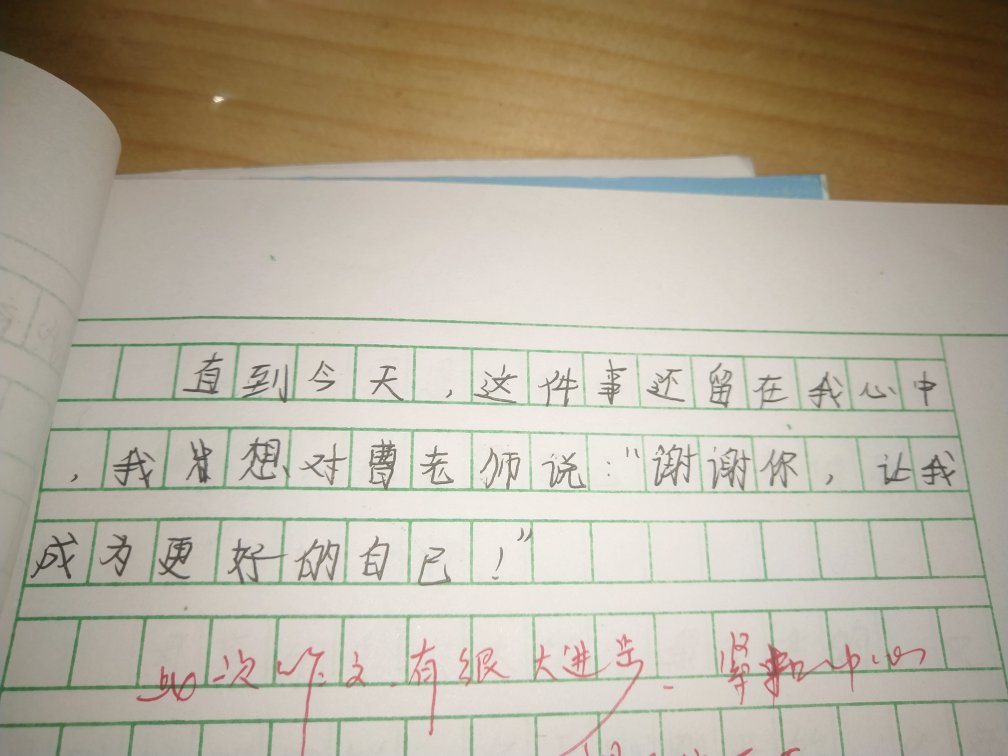 直到今天,这件事还留在我心中
,我想对曹老师说:“谢谢你,让我
成为更好的自己!”
一次作文.有很大进步.